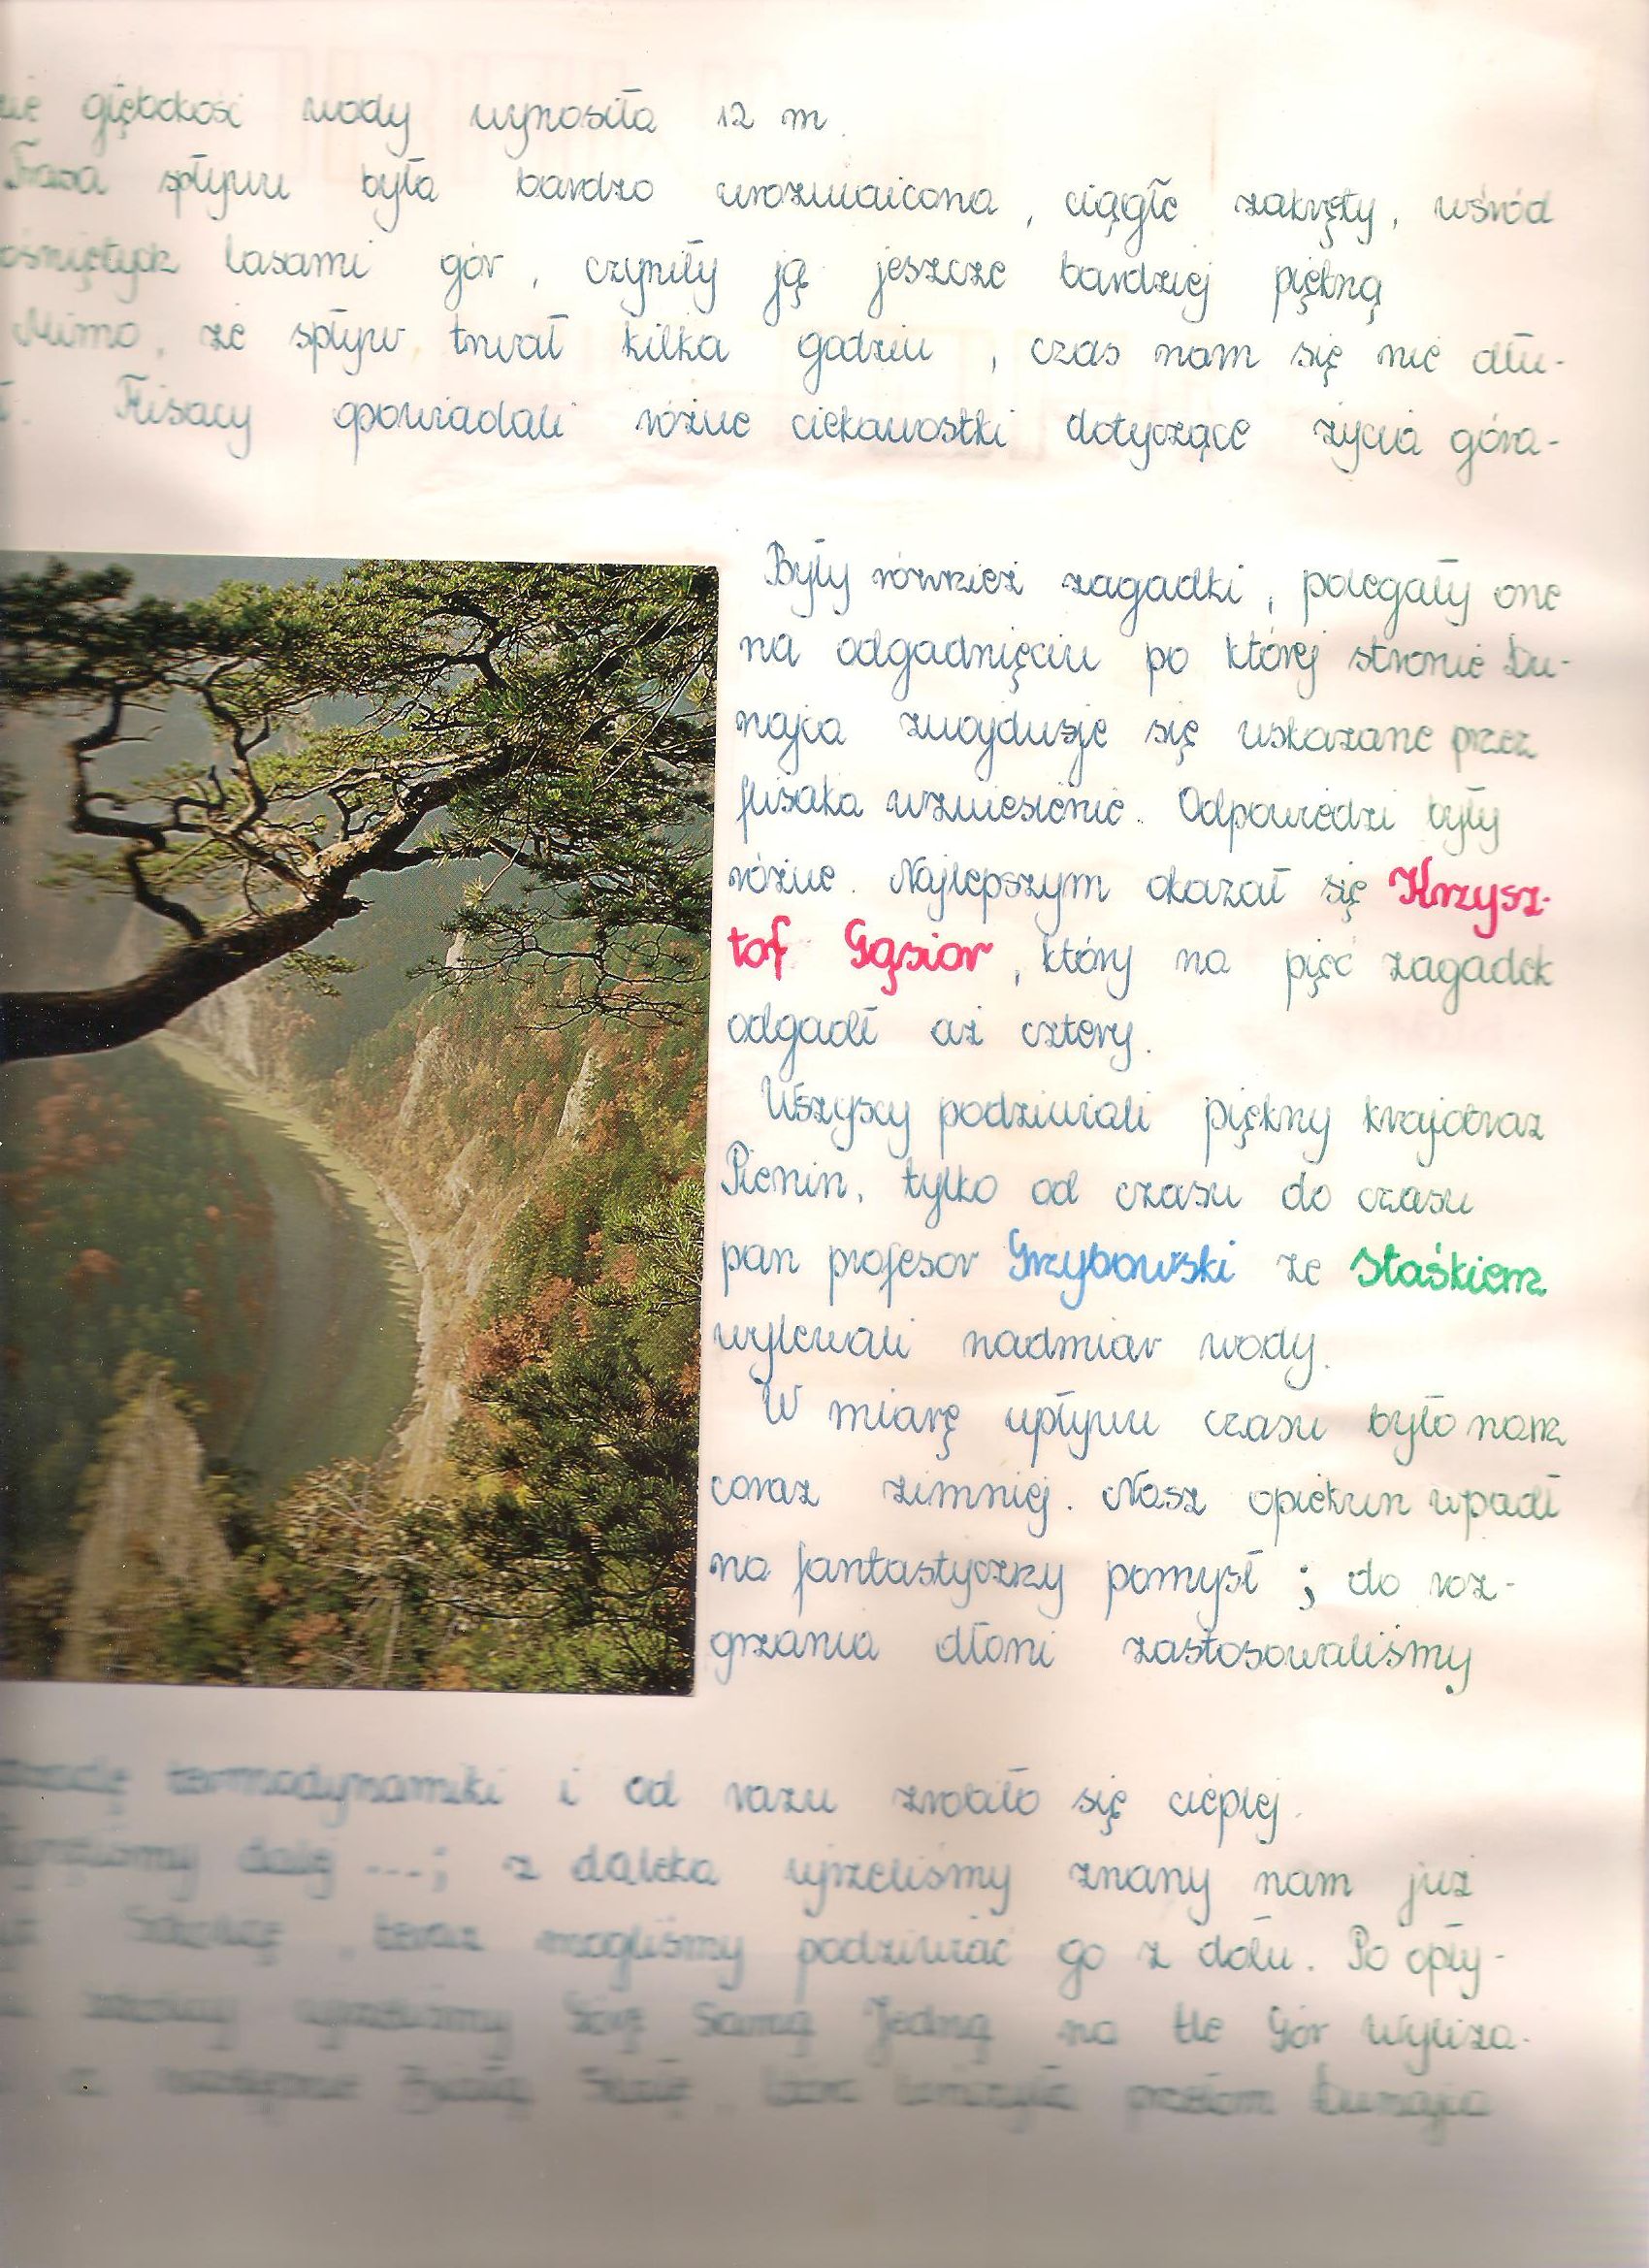 głębokość wody wynosiła 12 m.
Trasa spływu była bardzo urozmaicona, ciągłe zakręty, wśród
ośniętych lasami gór, czyniły ją jeszcze bardziej piękną
Mimo, że spływ trwał kilka godzin, czas nam się nie dłu-
Flisacy opowiadali różne ciekawostki dotyczące życia góra-
Były również zagadki, polegały one
na odgadnięciu po której stronie Du-
najca znajduje się wskazane przez
flisaka wzniesienie. Odpowiedzi były
różne. Najlepszym okazał się Krzysz-
tof Gąsior, który na pięć zagadek
odgadł aż cztery.
Wszyscy podziwiali piękny krajobraz
Pienin, tylko od czasu do czasu
pan profesor Grzybowski ze Staśkiem
wylewali nadmiar wody.
W miarę upływu czasu było nam
coraz zimniej. Nasz opiekun wpadł
na fantastyczny pomysł; do roz-
grzania dłoni zastosowaliśmy
termodynamiki i od razu zrobiło się cieplej.
dalej ...; z daleka ujrzeliśmy znany nam już
Sokolicę, teraz mogliśmy podziwiać go z dołu. Po opły-
ujrzeliśmy Górę Samą Jedną na tle Gór Wyliza-
a następnie Białą Skałę, która kończyła przełom Dunajca